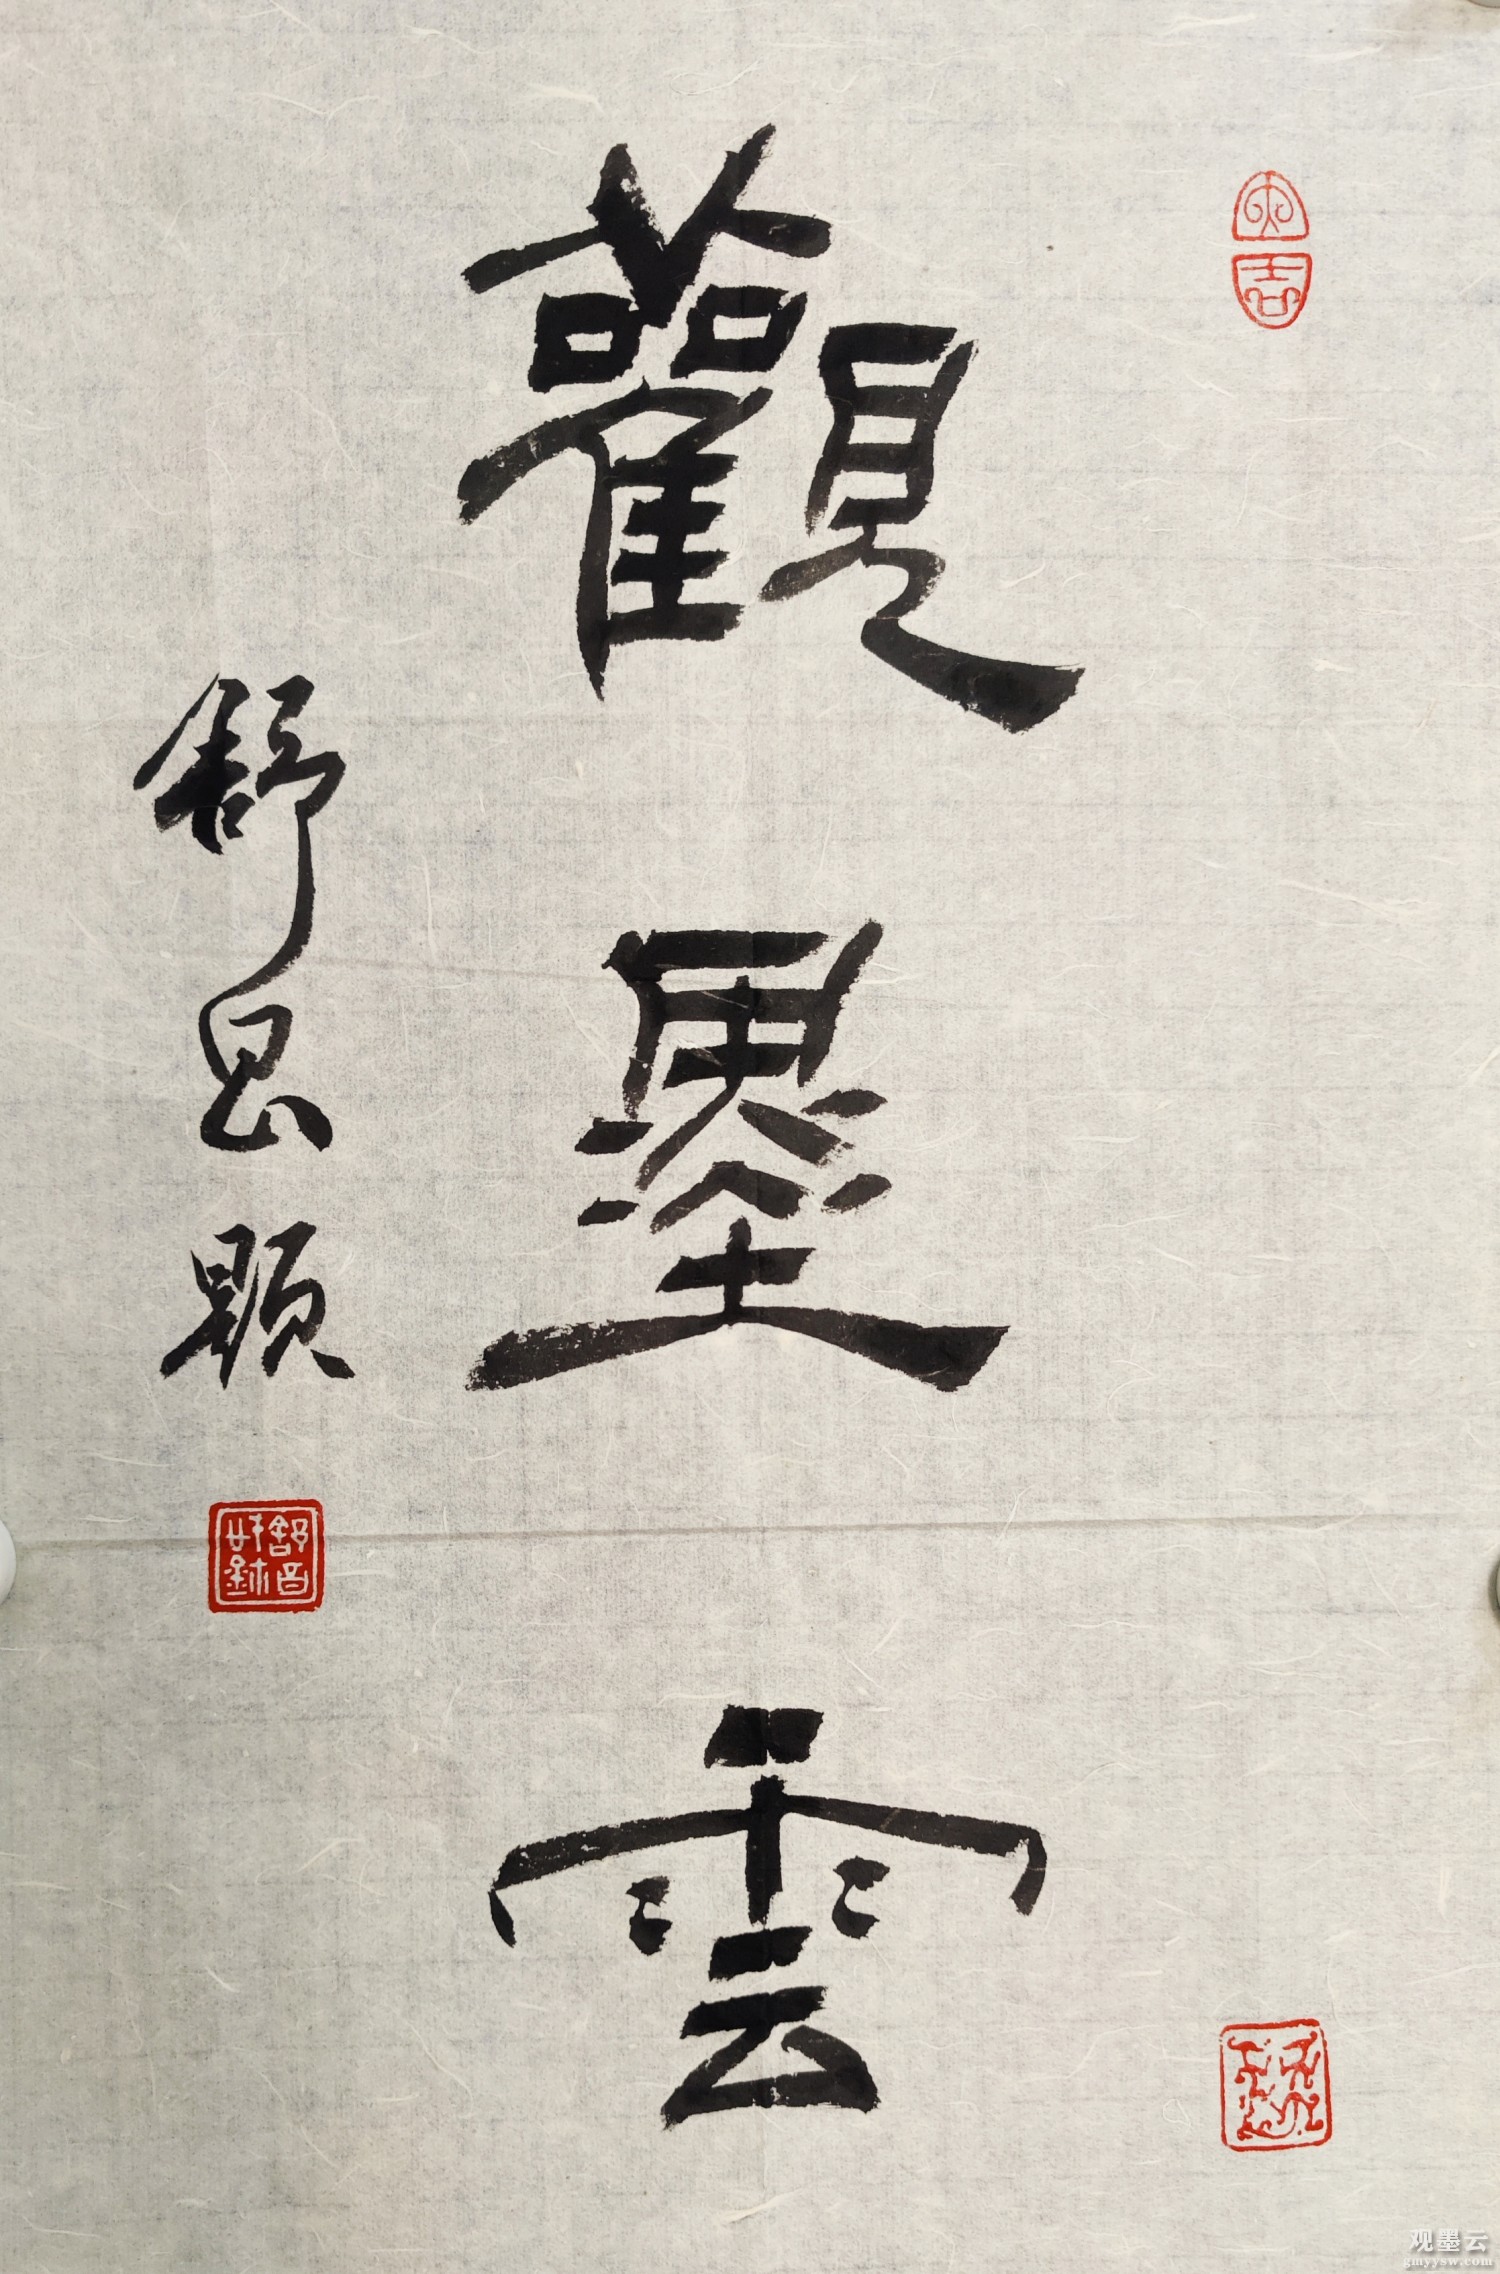 觀墨雲
舒昌題
大吉
观墨云
gmyysw.com